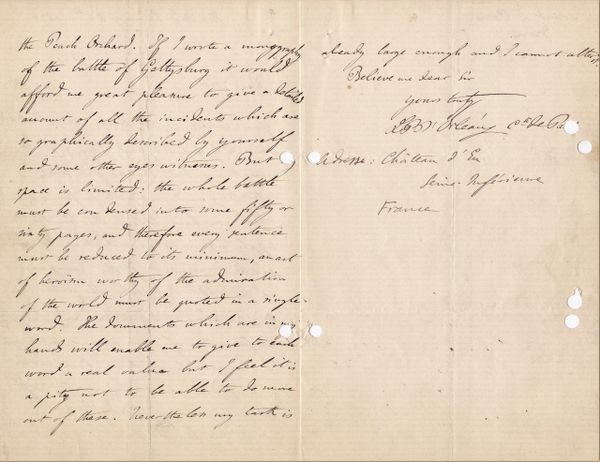 the Peach Orchard. If I wrote a monography
of the battle of Gettysburg it would
afford me great pleasure to give a detailed
amount of all the incidents which are
so graphically described by yourself
and some other eyes witnesses. But
space is limited: the whole battle
must be condensed into some fifty or
sixty pages, and therefore every sentence
must be reduced to its minimum, an act
of heroism worthy of the admiration
of the world must be quoted in a single
word. The documents which are in my
hands will enable me to give to each
word a real value but I feel it is
a pity not to be able to do more
out of these. Nevertheless my task is
already large enough and I cannot alter
Believe me dear Sir
yours truly
d'Orléans
Adresse: Château d'Eu
Seine-Inférieure
France